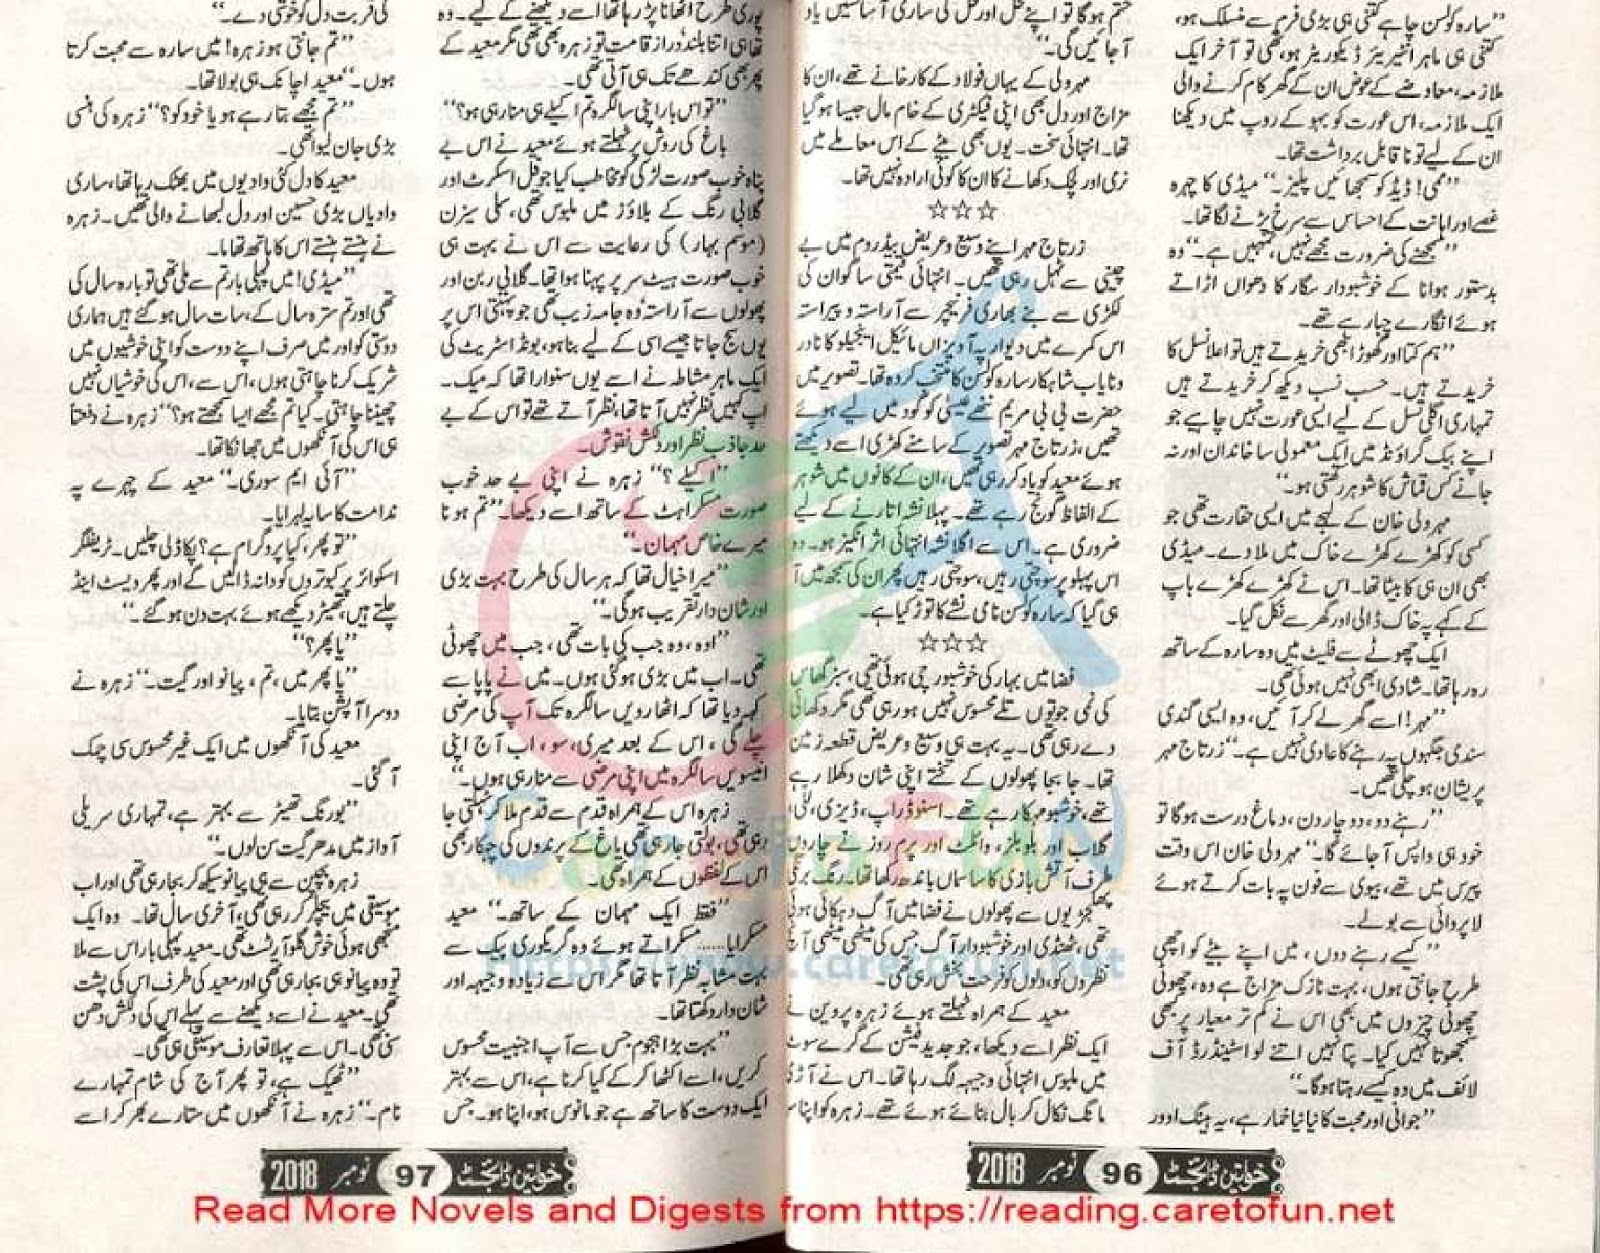 ”سارہ کولسن چاہے کتنی ہی بڑی فرم سے منسلک ہو،
کتنی ہی ماہر انٹیریئر ڈیکوریٹر ہو، تھی تو آخر ایک
ملازمہ، معاوضے کے عوض ان کے گھر کام کرنے والی
ایک ملازمہ، اس عورت کو بہو کے روپ میں دیکھنا
ان کے لیے تو ناقابل برداشت تھا۔
”ممی! ڈیڈ کو سمجھائیں پلیز۔“ میڈی کا چہرہ
غصے اور اہانت کے احساس سے سرخ پڑنے لگا تھا۔
”سمجھنے کی ضرورت مجھے نہیں، تمہیں ہے۔“ وہ
بدستور ہوانا کے خوشبودار سگار کا دھواں اڑاتے
ہوئے انگارے چبا رہے تھے۔
”ہم کتا اور گھوڑا بھی خریدتے ہیں تو اعلا نسل کا
خریدتے ہیں۔ حسب نسب دیکھ کر خریدتے ہیں
تمہاری اگلی نسل کے لیے ایسی عورت نہیں چاہیے جو
اپنے بیک گراؤنڈ میں ایک معمولی سا خاندان اور نہ
جانے کس قماش کا شوہر رکھتی ہو۔“
مہر ولی خان کے لہجے میں ایسی حقارت تھی جو
کسی کو کھڑے کھڑے خاک میں ملا دے۔ میڈی
بھی ان ہی کا بیٹا تھا۔ اس نے کھڑے کھڑے باپ
کے کہے پہ خاک ڈالی اور گھر سے نکل گیا۔
ایک چھوٹے سے فلیٹ میں وہ سارہ کے ساتھ
رہ رہا تھا۔ شادی ابھی نہیں ہوئی تھی۔
”مہر! اسے گھر لے کر آئیں، وہ ایسی گندی
سندی جگہوں پہ رہنے کا عادی نہیں ہے۔“ زرتاج مہر
پریشان ہو چلی تھیں۔
”رہنے دو، دو چار دن، دماغ درست ہوگا تو
خود ہی واپس آ جائے گا۔“ مہر ولی خان اس وقت
پیرس میں تھے، بیوی سے فون پہ بات کرتے ہوئے
لاپروائی سے بولے۔
”کیسے رہنے دوں، میں اپنے بیٹے کو اچھی
طرح جانتی ہوں، بہت نازک مزاج ہے وہ، چھوٹی
چھوٹی چیزوں میں بھی اس نے کم تر معیار پر بھی
سمجھوتا نہیں کیا۔ پتا نہیں اتنے لو اسٹینڈرڈ آف
لائف میں وہ کیسے رہتا ہوگا۔“
”جوانی اور محبت کا نیا نیا خمار ہے، یہ ہینگ اوور
ختم ہوگا تو اپنے محل اور محل کی ساری آسائشیں یاد
آ جائیں گی۔“
مہر ولی کے یہاں فولاد کے کارخانے تھے، ان کا
مزاج اور دل بھی اپنی فیکٹری کے خام مال جیسا ہو گیا
تھا۔ انتہائی سخت۔ یوں بھی بیٹے کے اس معاملے میں
نرمی اور لچک دکھانے کا ان کا کوئی ارادہ نہیں تھا۔
☆☆☆
زرتاج مہر اپنے وسیع و عریض بیڈروم میں بے
چینی سے ٹہل رہی تھیں۔ انتہائی قیمتی ساگوان کی
لکڑی سے بنے بھاری فرنیچر سے آراستہ و پیراستہ
اس کمرے میں دیوار پہ آویزاں مائیکل اینجلو کا نادر
و نایاب شاہکار سارہ کولسن کا منتخب کردہ تھا۔ تصویر میں
حضرت بی بی مریم ننھے عیسیٰ کو گود میں لیے ہوئے
تھیں، زرتاج مہر تصویر کے سامنے کھڑی اسے دیکھتے
ہوئے معید کو یاد کر رہی تھیں، ان کے کانوں میں شوہر
کے الفاظ گونج رہے تھے۔ پہلا نشہ اتارنے کے لیے
ضروری ہے۔ اس سے اگلا نشہ انتہائی اثر انگیز ہو۔ وہ
اس پہلو پر سوچتی رہیں، سوچتی رہیں پھر ان کی سمجھ میں آ
ہی گیا کہ سارہ کولسن نامی نشے کا توڑ کیا ہے۔
☆☆☆
فضا میں بہار کی خوشبو رچی ہوئی تھی، سبز گھاس
کی نمی جوتوں تلے محسوس نہیں ہو رہی تھی مگر دکھائی
دے رہی تھی۔ یہ بہت ہی وسیع و عریض قطعہ زمین
تھا۔ جا بجا پھولوں کے تختے اپنی شان دکھلا رہے
تھے، خوشبو مہکا رہے تھے۔ اسنو ڈراپ، ڈیزی، للی،
گلاب اور بلو بلز، وائلٹ اور پرم روز نے چاروں
طرف آتش بازی کا سا سماں باندھ رکھا تھا۔ رنگ برنگی
پھلجھڑیوں سے پھولوں نے فضا میں آگ دہکائی ہوئی
تھی، ٹھنڈی اور خوشبودار آگ جس کی میٹھی میٹھی آنچ
نظروں کو، دلوں کو فرحت بخش رہی تھی۔
معید کے ہمراہ ٹہلتے ہوئے زہرہ پروین نے
ایک نظر اسے دیکھا، جو جدید فیشن کے گرے سوٹ
میں ملبوس انتہائی وجیہہ لگ رہا تھا۔ اس نے آڑی
مانگ نکال کر بال بنائے ہوئے تھے۔ زہرہ کو اپنا سر
خواتین ڈائجسٹ 96 نومبر 2018
پوری طرح اٹھانا پڑ رہا تھا اسے دیکھنے کے لیے۔ وہ
تھا ہی اتنا بلند، دراز قامت تو زہرہ بھی تھی مگر معید کے
پھر بھی کندھے تک ہی آتی تھی۔
”تو اس بار اپنی سالگرہ تم اکیلے ہی منا رہی ہو؟“
باغ کی روش پر ٹہلتے ہوئے معید نے اس بے
پناہ خوب صورت لڑکی کو مخاطب کیا جو فل اسکرٹ اور
گلابی رنگ کے بلاؤز میں ملبوس تھی، سیزن
(موسم بہار) کی رعایت سے اس نے بہت ہی
خوب صورت ہیٹ سر پر پہنا ہوا تھا۔ گلابی ربن اور
پھولوں سے آراستہ وہ جامہ زیب تھی جو پہنتی اس پر
یوں سج جاتا جیسے اسی کے لیے بنا ہو، بونڈ اسٹریٹ کی
ایک ماہر مشاطہ نے اسے یوں سنوارا تھا کہ میک۔
اپ کہیں نظر نہیں آتا تھا، نظر آتے تھے تو اس کے بے
حد جاذب نظر اور دلکش نقوش۔
”اکیلے؟“ زہرہ نے اپنی بے حد خوب
صورت مسکراہٹ کے ساتھ اسے دیکھا۔ ”تم ہو نا
میرے خاص مہمان۔“
”میرا خیال تھا کہ ہر سال کی طرح بہت بڑی
اور شاندار تقریب ہوگی۔“
”اوہ، وہ جب کی بات تھی، جب میں چھوٹی
تھی۔ اب میں بڑی ہو گئی ہوں۔ میں نے پاپا سے
کہہ دیا تھا کہ اٹھارویں سالگرہ تک آپ کی مرضی
چلے گی، اس کے بعد میری، سو، اب آج اپنی
انیسویں سالگرہ میں اپنی مرضی سے منا رہی ہوں۔“
زہرہ اس کے ہمراہ قدم سے قدم ملا کر چلتی جا
رہی تھی، بولتی جا رہی تھی باغ کے پرندوں کی چہکار بھی
اس کے لفظوں کے ہمراہ تھی۔
”فقط ایک مہمان کے ساتھ۔“ معید
مسکرایا...... مسکراتے ہوئے وہ گریگوری پیک سے
بہت مشابہ نظر آتا تھا مگر اس سے زیادہ وجیہہ اور
شاندار دکھتا تھا۔
”بہت بڑا ہجوم جس سے آپ اجنبیت محسوس
کریں، اسے اکٹھا کر کے کیا کرنا ہے، اس سے بہتر
ایک دوست کا ساتھ ہے جو مانوس ہو، اپنا ہو۔ جس
کی قربت دل کو خوشی دے۔“
”تم جانتی ہو زہرہ! میں سارہ سے محبت کرتا
ہوں۔“ معید اچانک ہی بولا تھا۔
”تم مجھے بتا رہے ہو یا خود کو؟“ زہرہ کی ہنسی
بڑی جان لیوا تھی۔
معید کا دل کئی وادیوں میں بھٹک رہا تھا، ساری
وادیاں بڑی حسین اور دل لبھانے والی تھیں۔ زہرہ
نے ہنستے ہنستے اس کا ہاتھ تھاما۔
”میڈی! میں پہلی بار تم سے ملی تھی تو بارہ سال کی
تھی اور تم سترہ سال کے، سات سال ہو گئے ہیں ہماری
دوستی کو اور میں صرف اپنے دوست کو اپنی خوشیوں میں
شریک کرنا چاہتی ہوں، اس سے، اس کی خوشیاں نہیں
چھیننا چاہتی۔ کیا تم مجھے ایسا سمجھتے ہو؟“ زہرہ نے دفعتاً
ہی اس کی آنکھوں میں جھانکا تھا۔
”آئی ایم سوری۔“ معید کے چہرے پہ
ندامت کا سایہ لہرایا۔
”تو پھر، کیا پروگرام ہے؟ پکاڈلی چلیں۔ ٹریفلگر
اسکوائر پر کبوتروں کو دانہ ڈالیں گے اور پھر ویسٹ اینڈ
چلتے ہیں، تھیٹر دیکھے ہوئے بہت دن ہو گئے۔“
”یا پھر؟“
”یا پھر میں، تم، پیانو اور گیت۔“ زہرہ نے
دوسرا آپشن بتایا۔
معید کی آنکھوں میں ایک غیر محسوس سی چمک
آ گئی۔
”بورنگ تھیٹر سے بہتر ہے، تمہاری سریلی
آواز میں مدھر گیت سن لوں۔“
زہرہ بچپن سے ہی پیانو سیکھ کر بجا رہی تھی اور اب
موسیقی میں بیچلر کر رہی تھی، آخری سال تھا۔ وہ ایک
منجھی ہوئی خوش گلو آرٹسٹ تھی۔ معید پہلی بار اس سے ملا
تو وہ پیانو ہی بجا رہی تھی اور معید کی طرف اس کی پشت
تھی۔ معید نے اسے دیکھنے سے پہلے اس کی دلکش دھن
سنی تھی۔ اس سے پہلا تعارف موسیقی ہی تھی۔
”ٹھیک ہے، تو پھر آج کی شام تمہارے
نام۔“ زہرہ نے آنکھوں میں ستارے بھر کر اسے
خواتین ڈائجسٹ 97 نومبر 2018
CaretoFUN
https://www.caretofun.net
Read More Novels and Digests from https://reading.caretofun.net